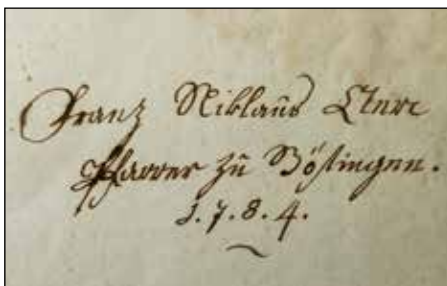 Franz Niklaus Clerc
Pfarrer zu Bösingen.
1.7.8.4.